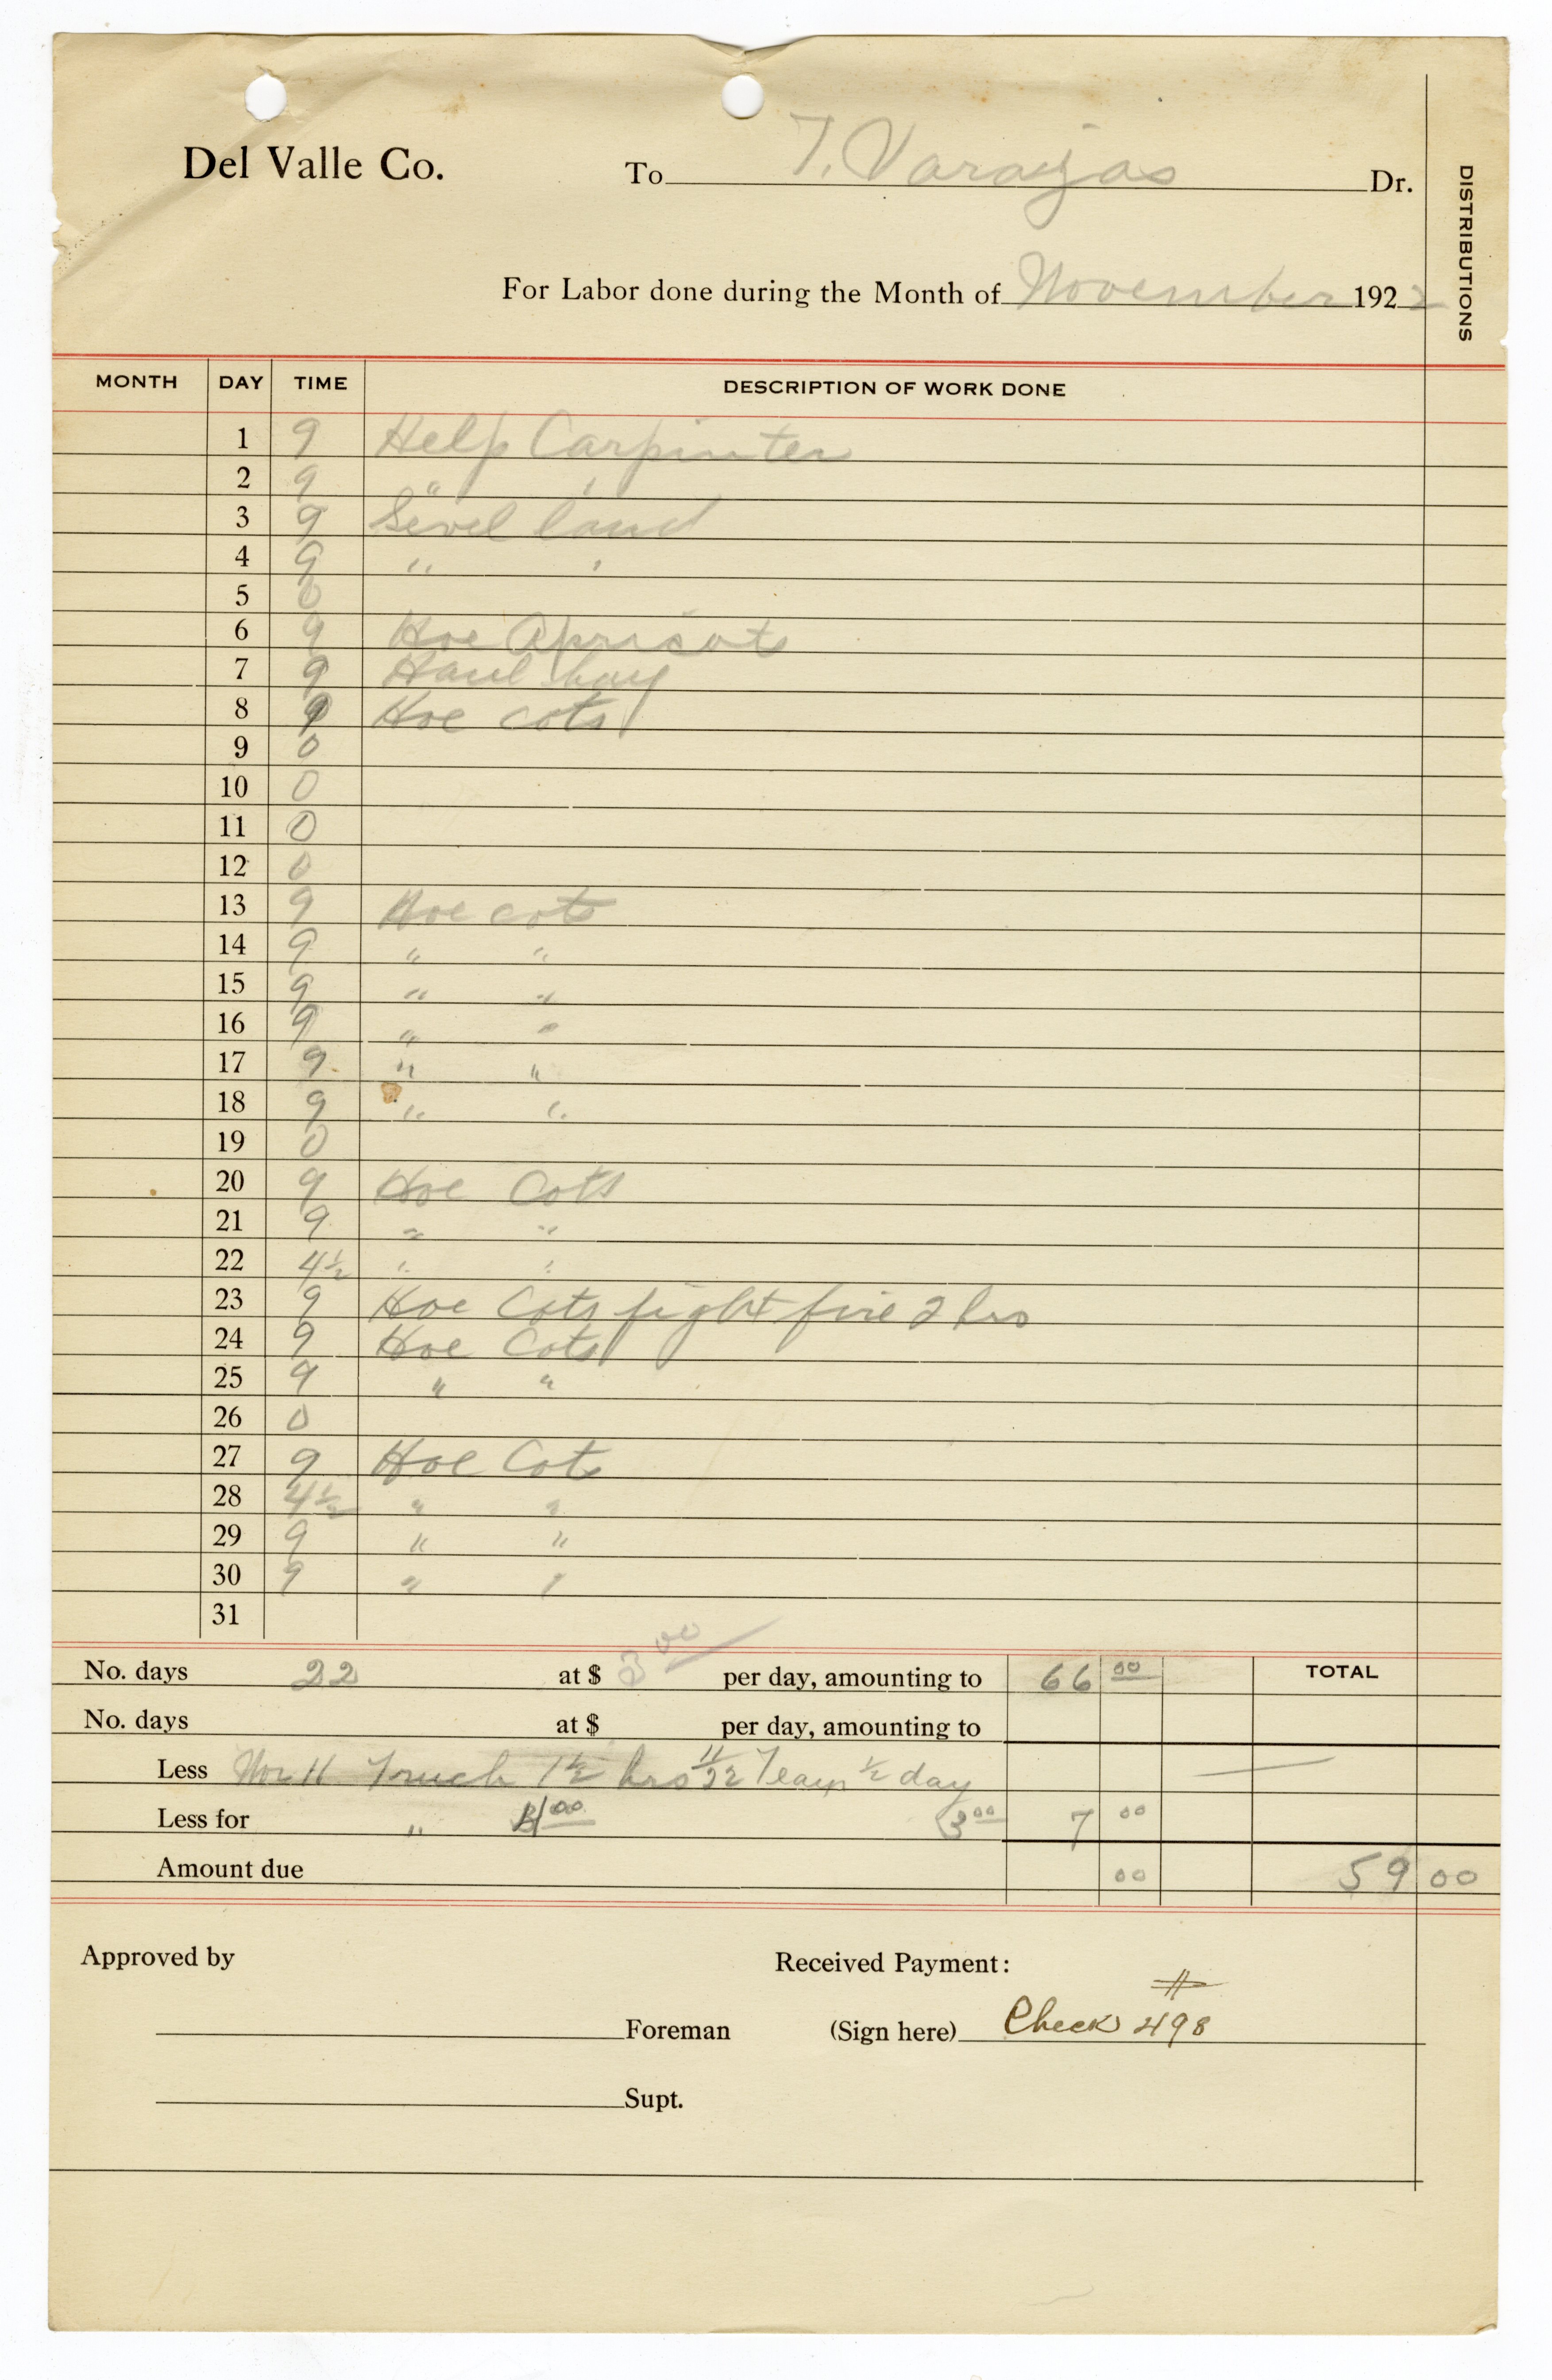 Del Valle Co. To T. Varajas Dr.
DISTRIBUTIONS
For Labor done during the Month of November 1922
MONTH DAY TIME DESCRIPTION OF WORK DONE
1 9 Help Carpinter
2 9 " "
3 9 Level land
4 9 " "
5 0
6 9 Hoe Apricots
7 9 Haul hay
8 9 Hoe cots
9 0
10 0
11 0
12 0
13 9 Hoe cots
14 9 " "
15 9 " "
16 9 " "
17 9 " "
18 9 " "
19 0
20 9 Hoe Cots
21 9 " "
22 4½ " "
23 9 Hoe Cots fight fire 2 hrs
24 9 Hoe Cots
25 9 " "
26 0
27 9 Hoe Cots
28 4½ " "
29 9 " "
30 9 " "
31
No. days 22 at $ 3 00 per day, amounting to 66 00 TOTAL
No. days at $ per day, amounting to
Less Nov 11 Truck 1½ hrs 11/22 Team ½ day
Less for " 4 00 3 00 7 00
Amount due 00 59 00
Approved by Received Payment:
Foreman (Sign here) Check # 498
Supt.